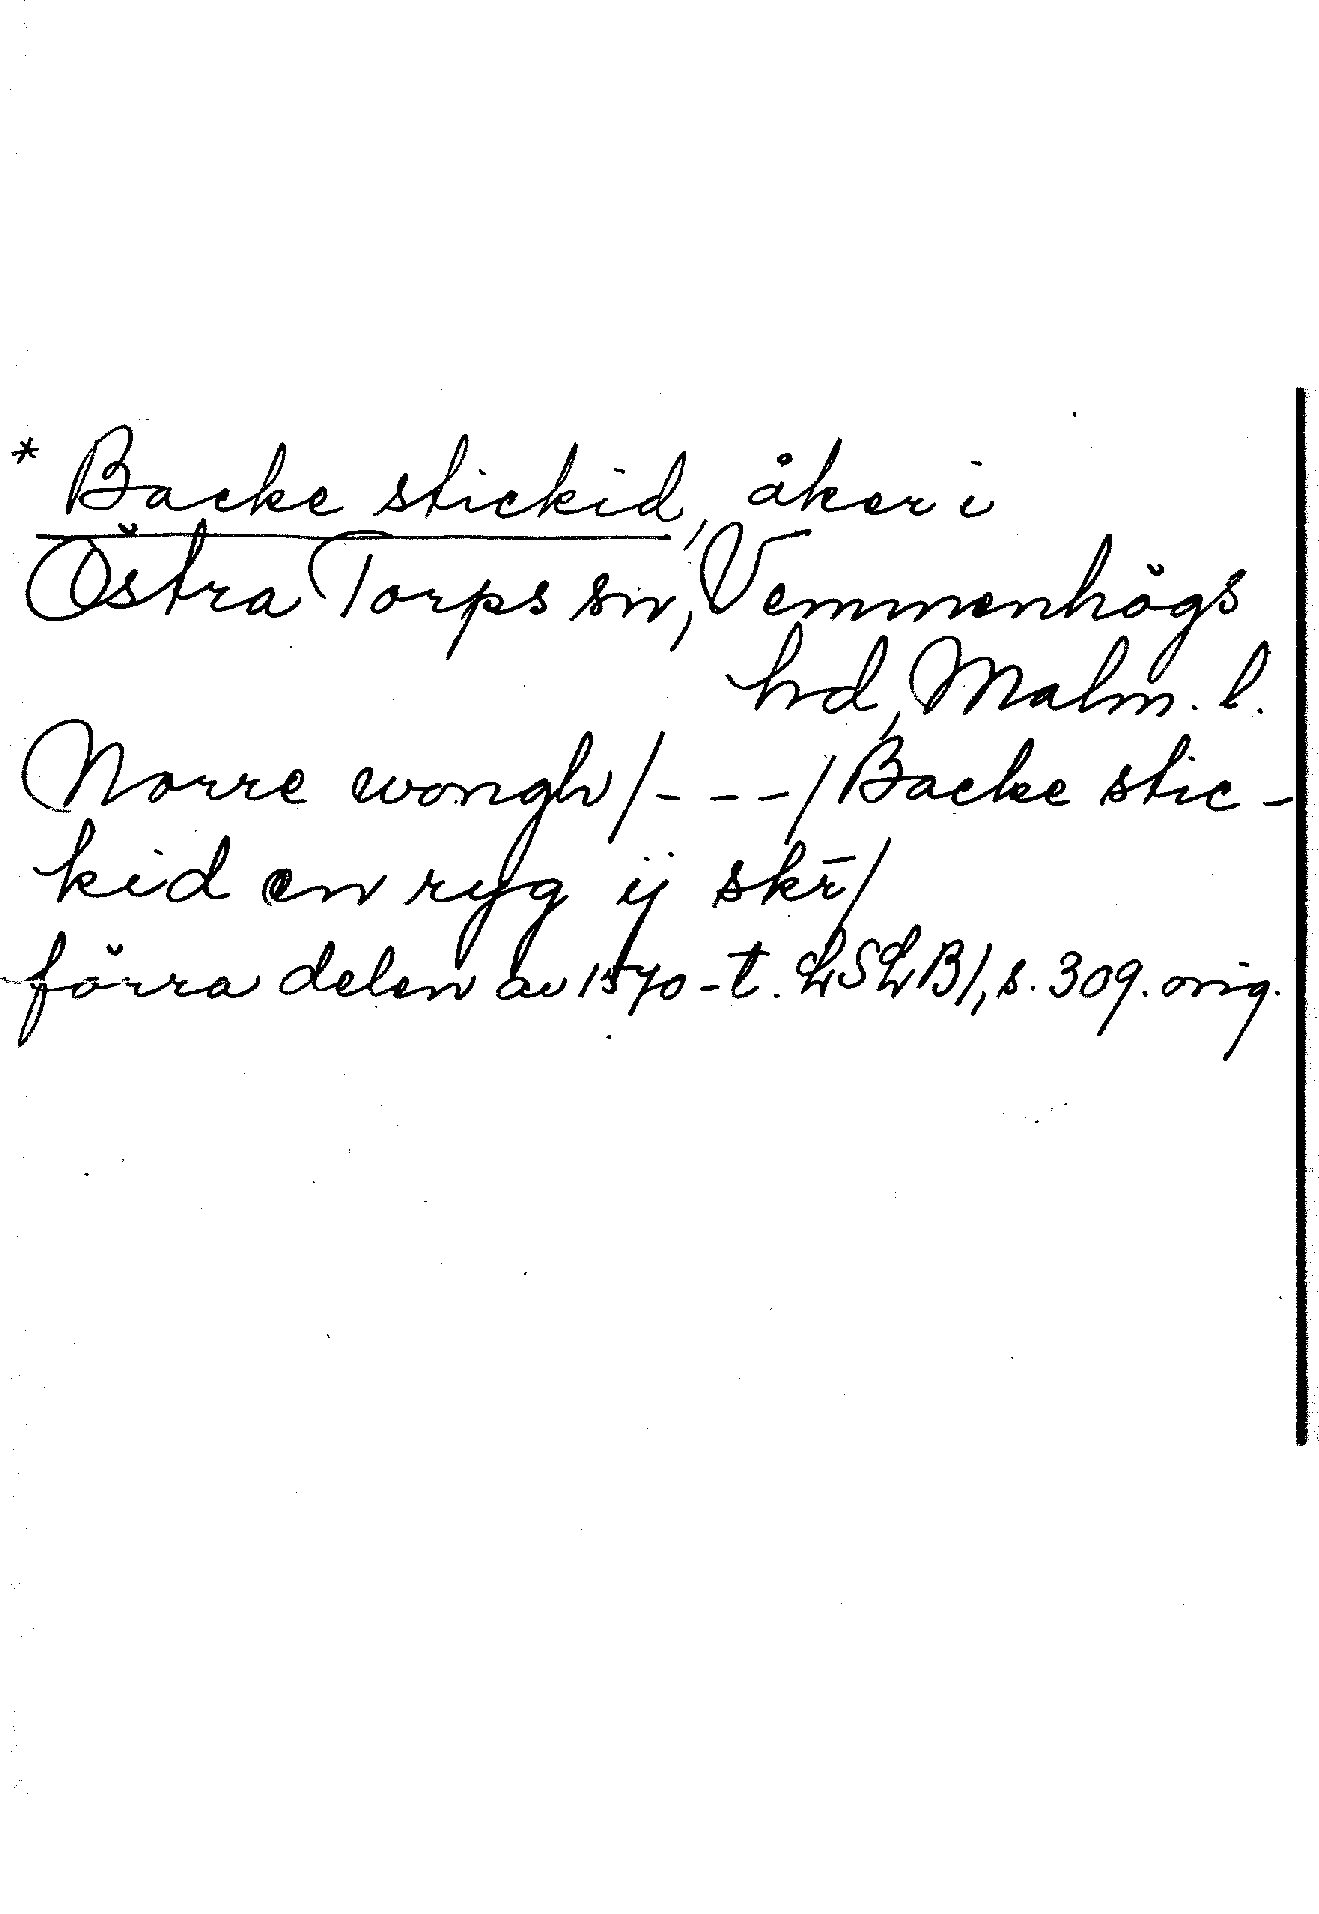 * Backe stickid, åker i
Östra Torps sn, Vemmenhögs
hd, Malm. l.
Norre wongh/---/Backe stic-
kid en ryg ij skr̄/
förra delen av 1570-t. LSLB1, s. 309. orig.